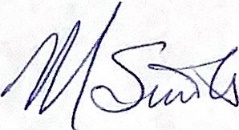 M Smits